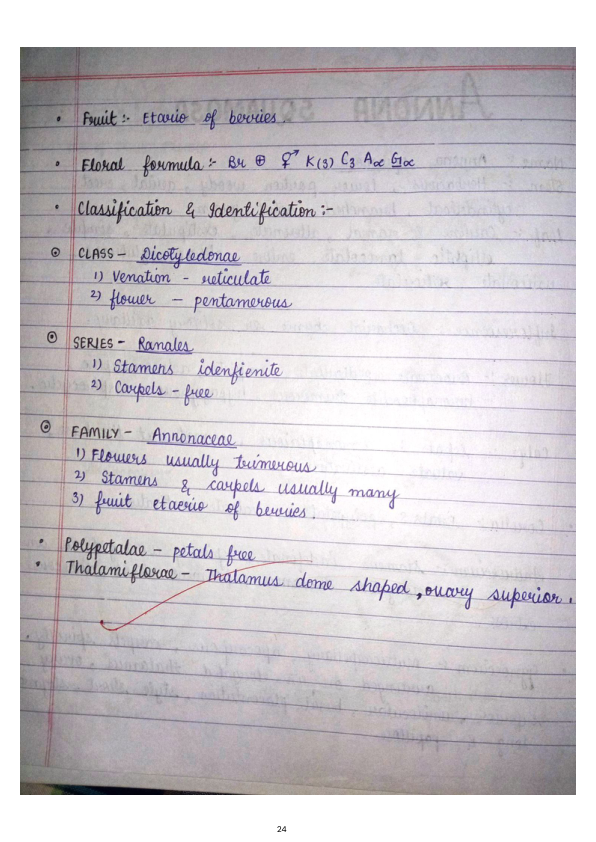 • Fruit :- Etario of berries.
• Floral formula :- Br ⊕ ⚥ K(3) C3 A∝ G∝
• Classification & Identification :-
⊙ CLASS - Dicotyledonae
1) Venation - reticulate
2) flower - pentamerous
⊙ SERIES - Ranales
1) Stamens idenfienite
2) Carpels - free
⊙ FAMILY - Annonaceae
1) Flowers usually trimerous
2) Stamens & carpels usually many
3) fruit etaerio of berries.
• Polypetalae - petals free
• Thalamiflorae - Thalamus dome shaped, ovary superior.
24